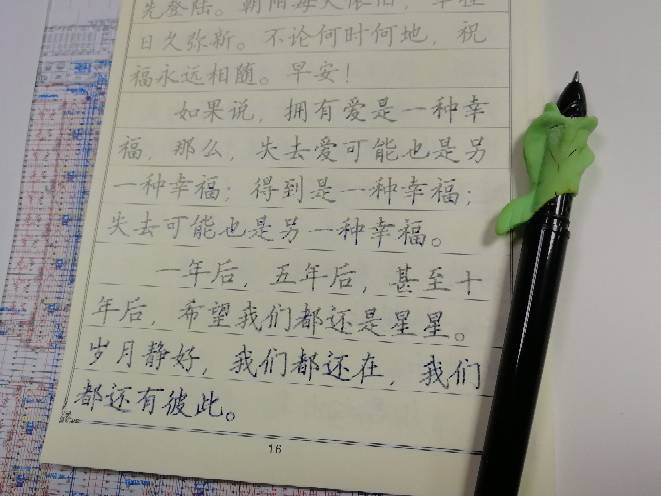 先登陆。朝阳每天依旧，幸福
日久弥新。不论何时何地，祝
福永远相随。早安！
如果说，拥有爱是一种幸
福，那么，失去爱可能也是另
一种幸福；得到是一种幸福；
失去可能也是另一种幸福。
一年后，五年后，甚至十
年后，希望我们都还是星星。
岁月静好，我们都还在，我们
都还有彼此。
16